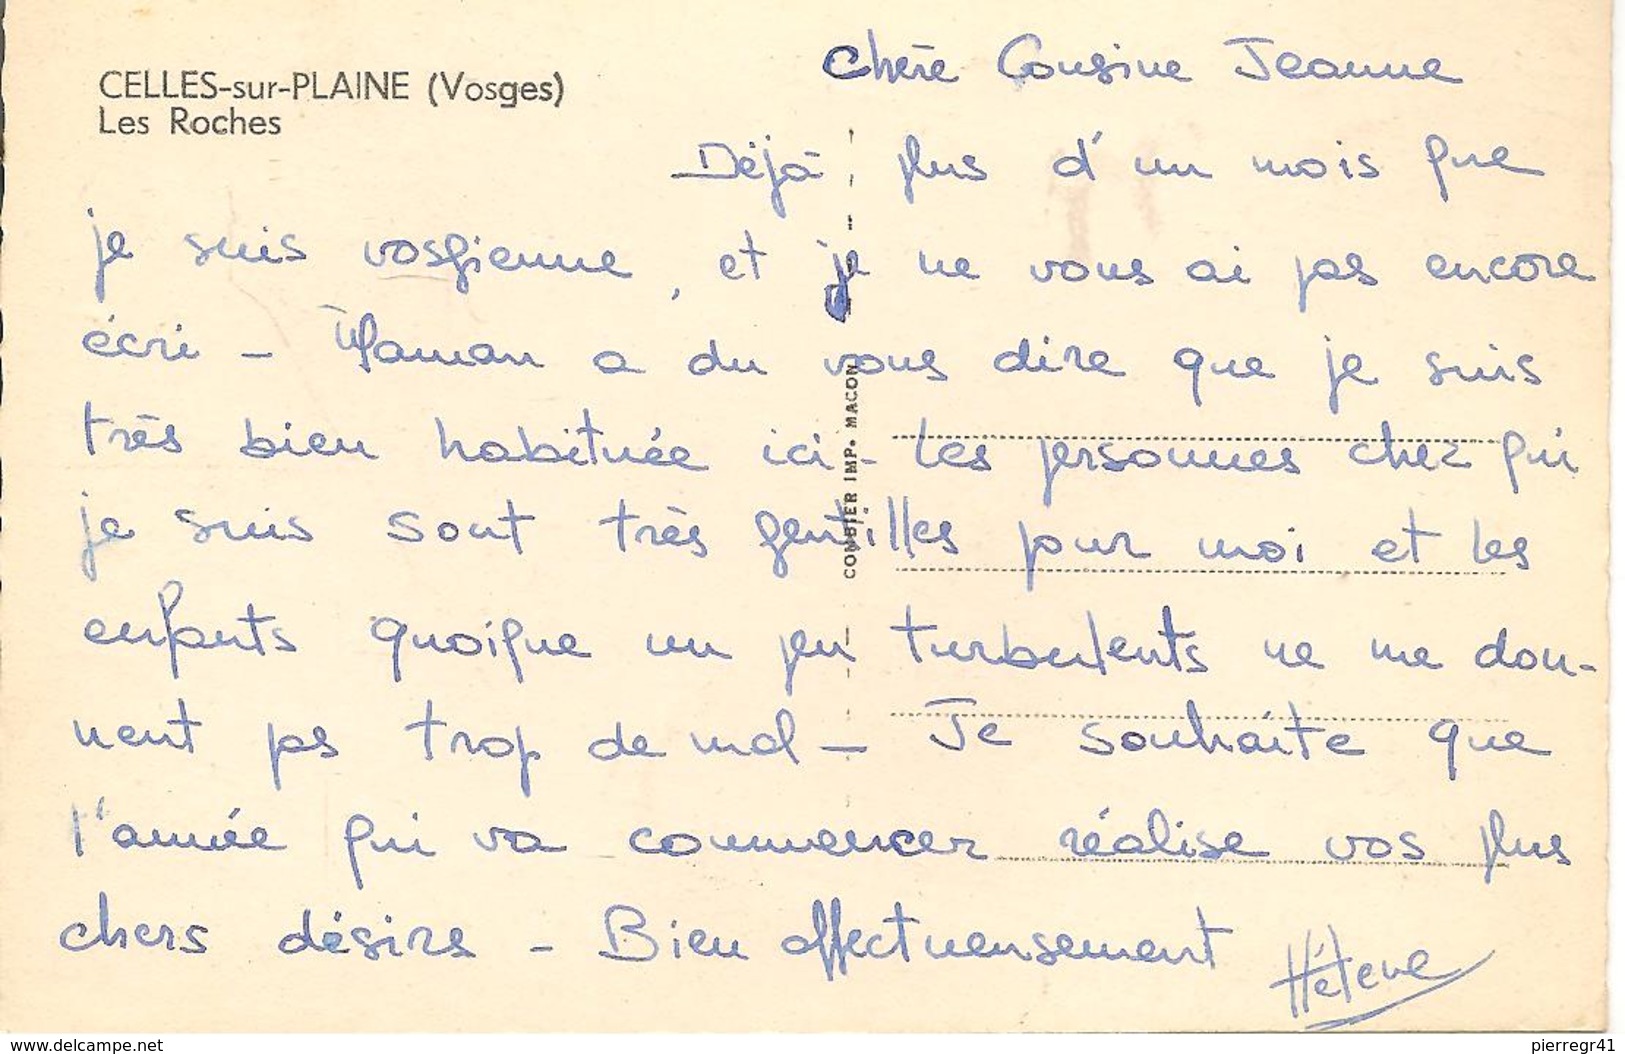 CELLES-sur-PLAINE (Vosges)
Les Roches
Chère Cousine Jeanne
Déjà, plus d'un mois que
je suis vosgienne, et je ne vous ai pas encore
écri - Maman a du vous dire que je suis
très bien habituée ici - Les personnes chez qui
je suis sont très gentilles pour moi et les
enfants quoique un peu turbulents ne me don-
nent pas trop de mal - Je souhaite que
l'année qui va commencer réalise vos plus
chers désirs - Bien affectueusement
Hélène
COMBIER IMP. MACON
www.delcampe.net
pierregr41